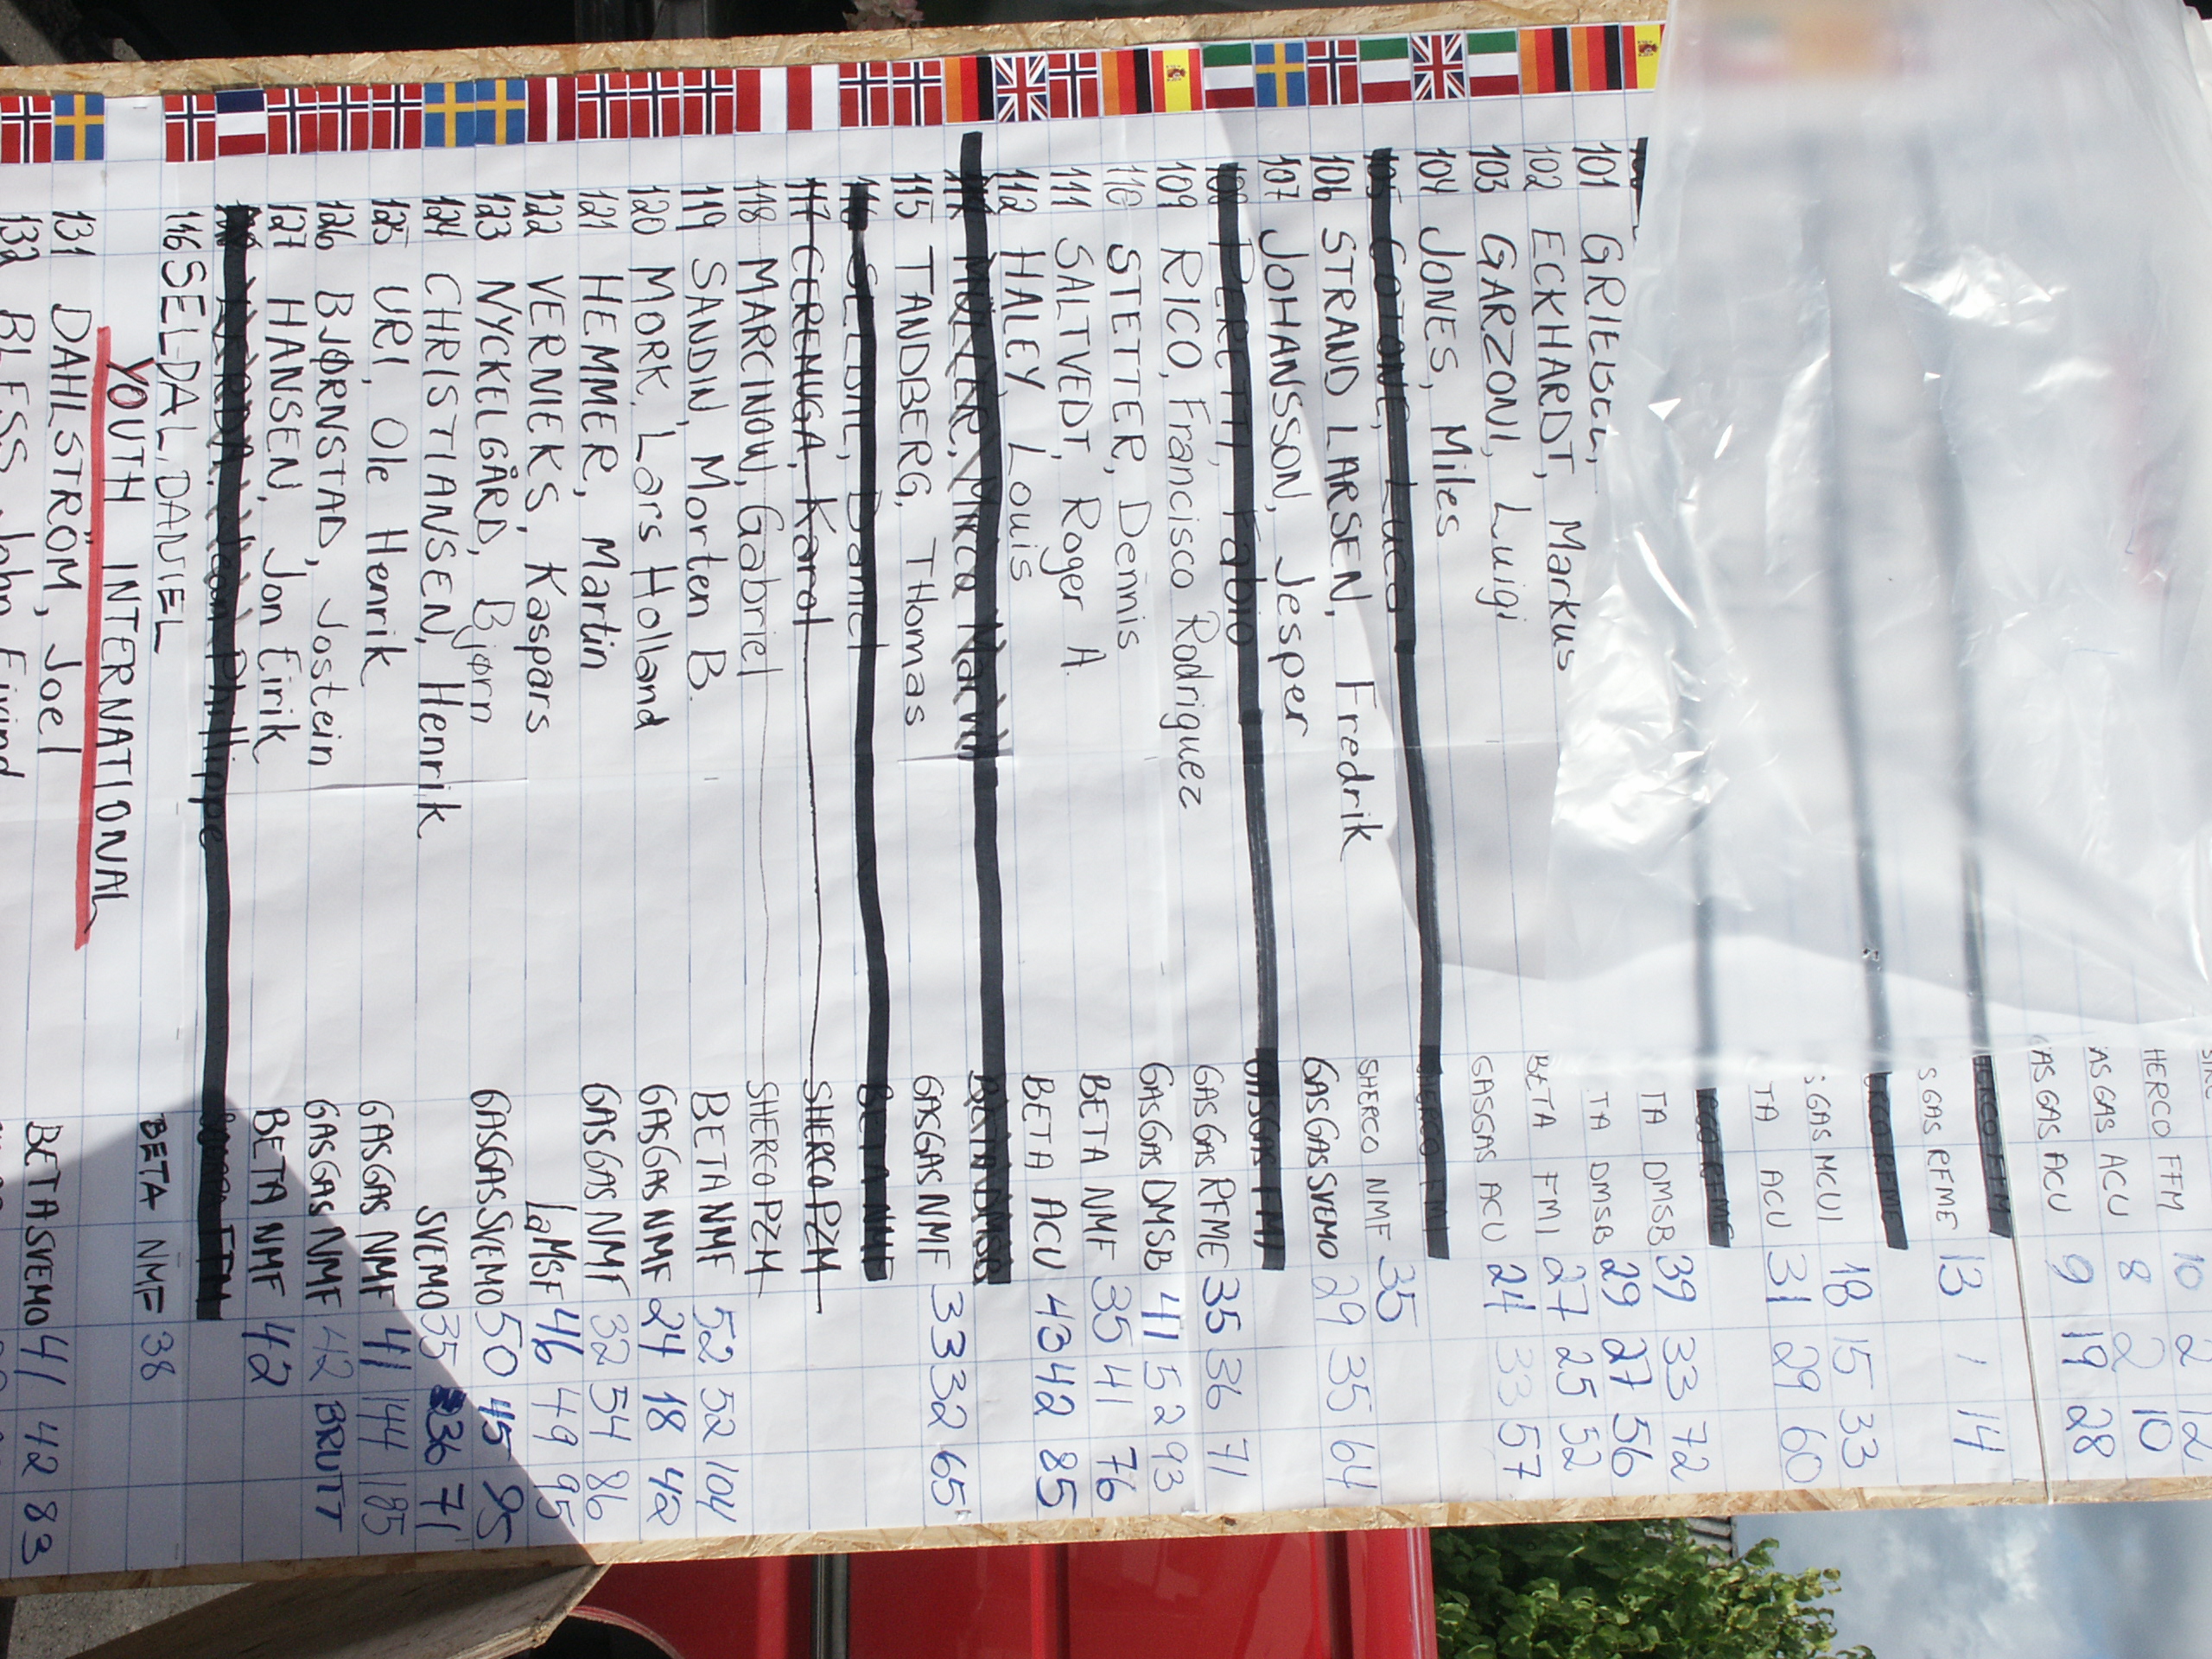 HERCO FFM 10 2 12
AS GAS ACU 8 2 10
AS GAS ACU 9 19 28
S GAS RFME 13 1 14
SGAS MCUI 18 15 33
TA ACU 31 29 60
101 TA DMSB 39 33 72
102 ECKHARDT, Markus TA DMSB 29 27 56
103 GARZONI, Luigi BETA FMI 27 25 52
104 JONES, Miles GASGAS ACU 24 33 57
105 COTONE, Luca
106 STRAND LARSEN, Fredrik SHERCO NMF 35
107 JOHANSSON, Jesper GASGAS SVEMO 29 35 64
108 PERETTI, Fabio GASGAS FMI
109 RICO, Francisco Rodriguez GASGAS RFME 35 36 71
110 STETTER, Dennis GASGAS DMSB 41 52 93
111 SALTVEDT, Roger A. BETA NMF 35 41 76
112 HALEY, Louis BETA ACU 43 42 85
BETA DMSB
115 TANDBERG, THomas GASGAS NMF 33 32 65
Daniel BETA NMF
117 CEREMUGA, Karol SHERCO PZM
118 MARCINOW, Gabriel SHERCO PZM
119 SANDIN, Morten B. BETA NMF 52 52 104
120 MORK, Lars Holland GASGAS NMF 24 18 42
121 HEMMER, Martin GASGAS NMF 32 54 86
122 VERNIEKS, Kaspars LaMSF 46 49 95
123 NYCKELGÅRD, Bjørn GASGAS SVEMO 50 45 95
124 CHRISTIANSEN, Henrik SVEMO 35 36 71
125 URI, Ole Henrik GASGAS NMF 41 144 185
126 BJØRNSTAD, Jostein GASGAS NMF 42 BRUTT
127 HANSEN, Jon Eirik BETA NMF 42
116 SELDAL, DANIEL BETA NMF 38
YOUTH INTERNATIONAL
131 DAHLSTRÖM, Joel BETA SVEMO 41 42 83
132 BLESS, John Eivind